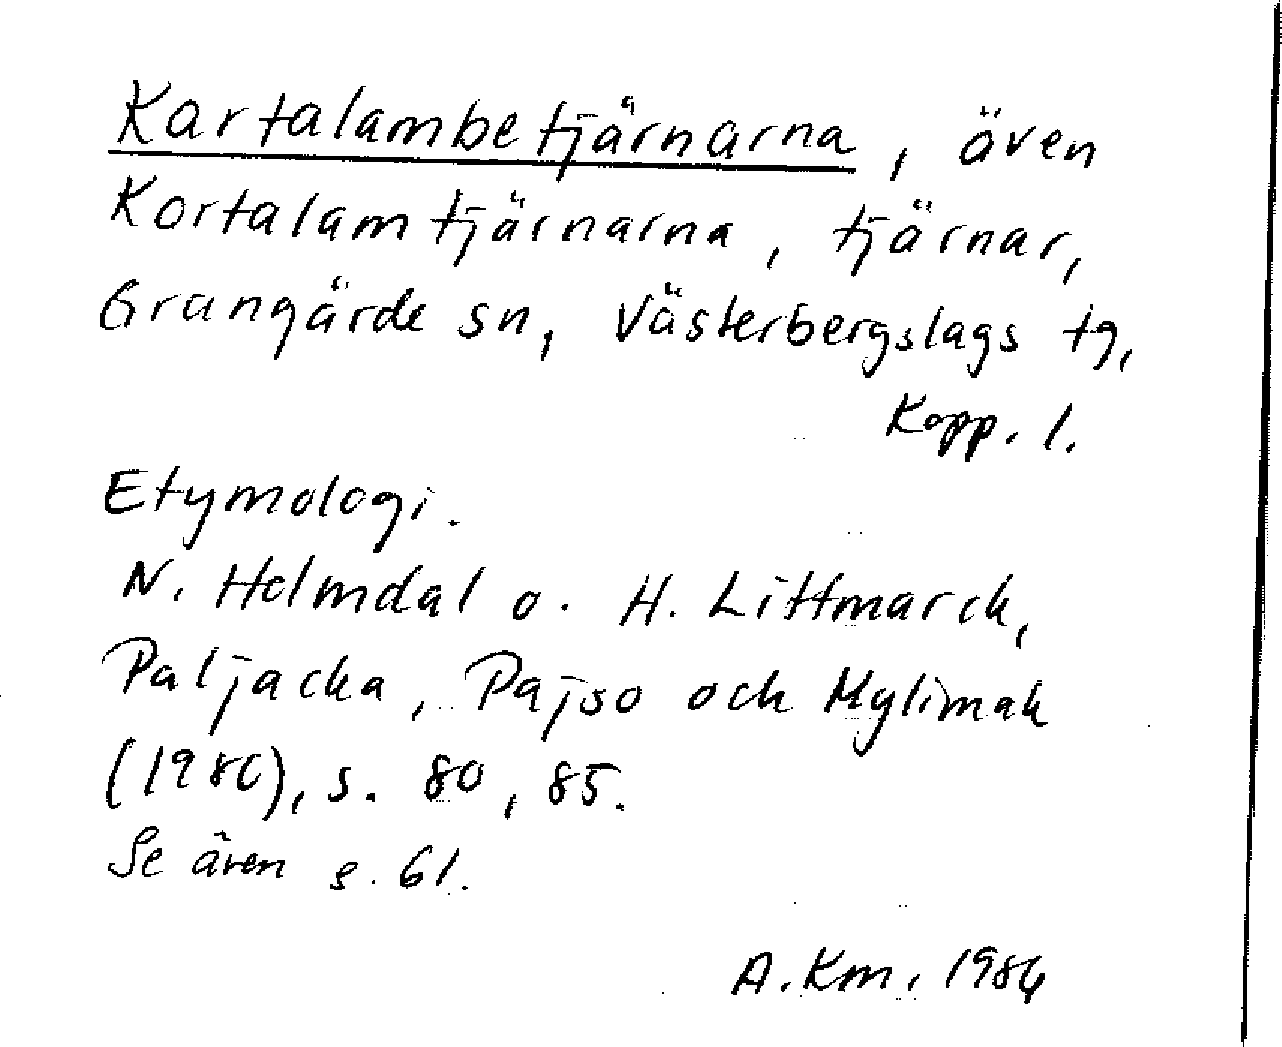 Kartalambetjärnarna, även
Kortalamtjärnarna, tjärnar,
Grangärde sn, Västerbergslags tg,
Kopp. l.
Etymologi.
N. Helmdal o. H. Littmarck,
Paljacka, Pajso och Mylimak
(1980), s. 80, 85.
Se även s. 61.
A. Km. 1984